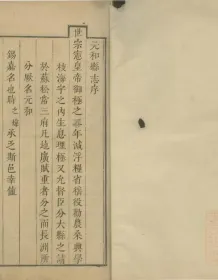 元和縣志序
世宗憲皇帝御極之三年減浮糧省徭役勸農桑興學
校海宇之內生息理極又允督臣分大縣之請
於蘇松常三府凡地廣賦重者分之而長洲所
分厥名元和
錫嘉名也時之 承乏斯邑幸值